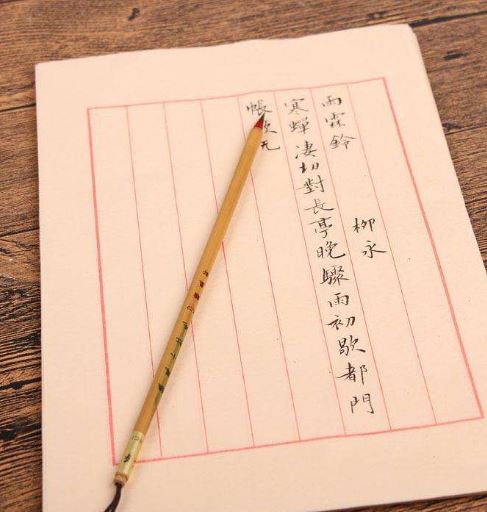 雨霖鈴
柳永
寒蟬淒切對長亭晚驟雨初歇都門
帳飲无